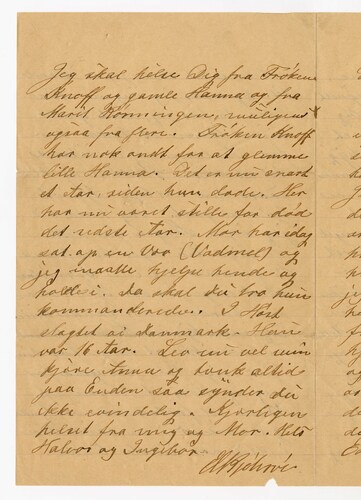 Jeg skal helse Dig fra Frøken
Knoff og gamle Hanna og fra
Marit Rønningen, muligens
ogsaa fra flere. Frøken Knoff
har nok ondt for at glemme
lille Hanna. Det er nu snart
et Aar, siden hun døde. Her
har nu været stille for død
det sidste Aar. Mor har idag
sat op en Væv (Vadmel) og
jeg maatte hjelpe hende og
holde i. Da skal du tro hun
kommanderede. I Høst
slagtet vi Danmark. Hun
var 16 Aar. Lev nu vel min
kjære Anna og tænk altid
paa Enden saa synder du
ikke evindelig. Kjærligen
helset fra mig og Mor. Hels
Halvor og Ingebør